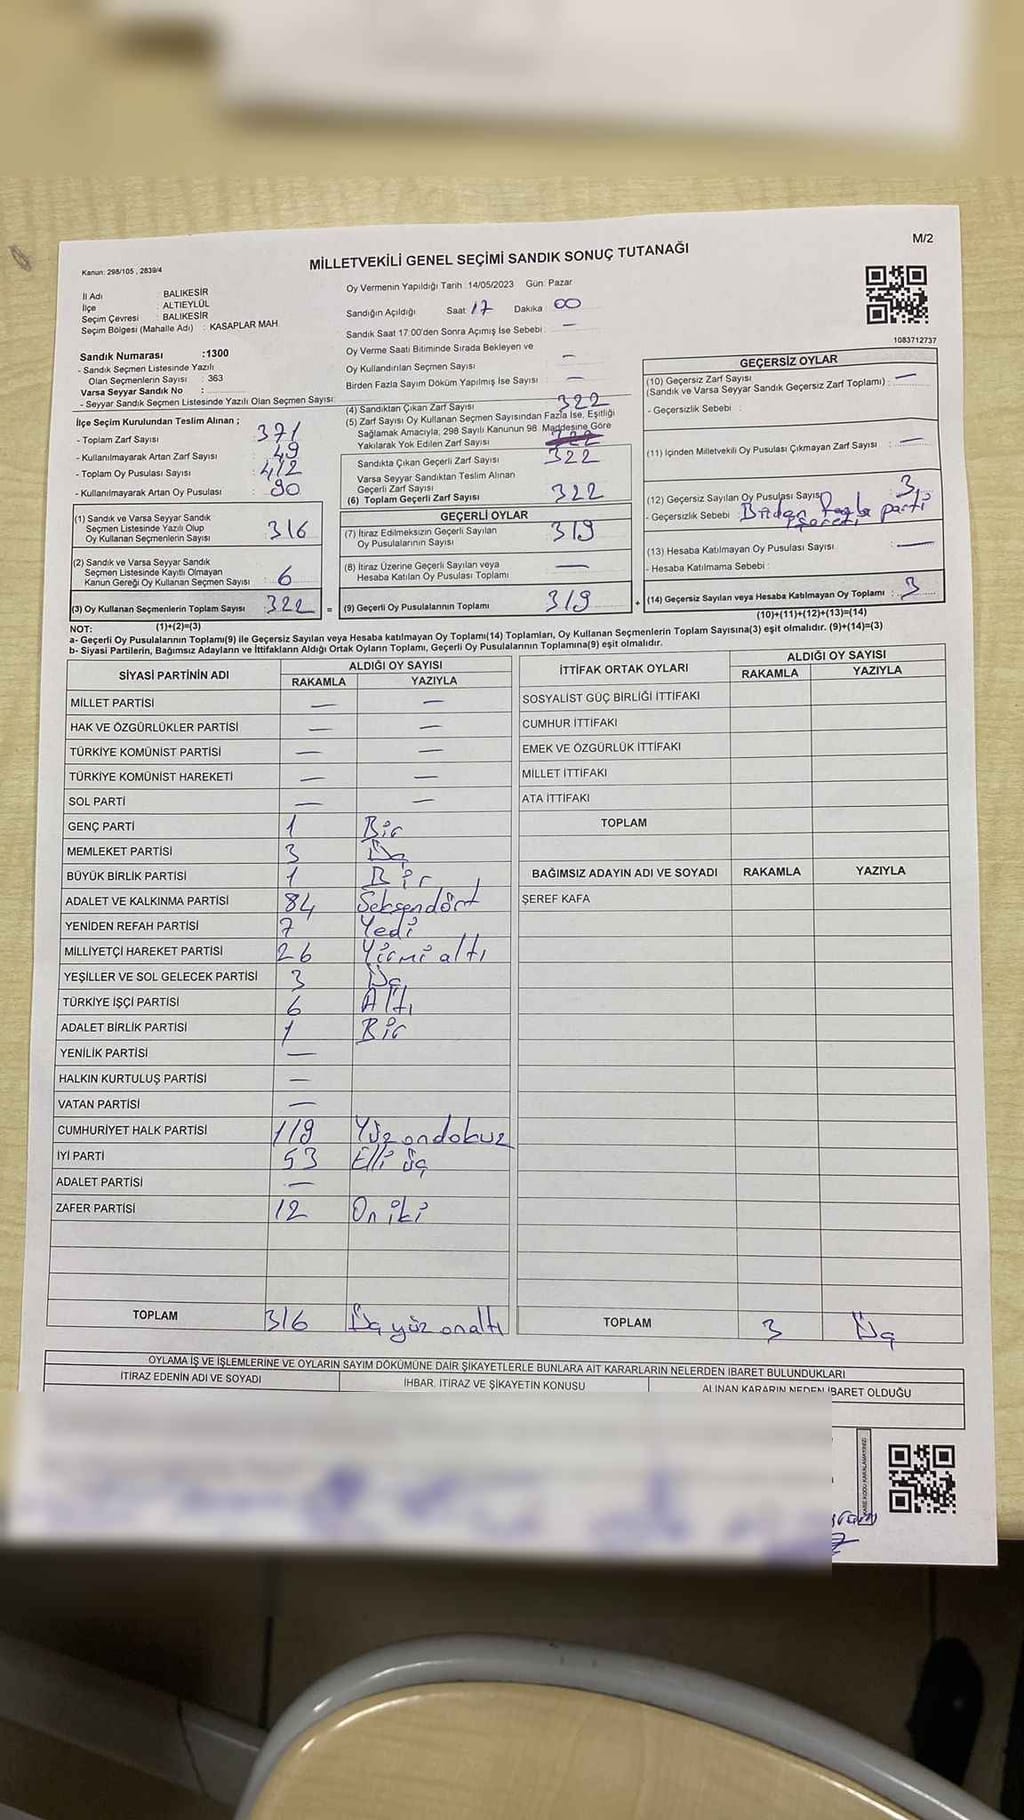 M/2
Kanun: 298/105 , 2839/4
MİLLETVEKİLİ GENEL SEÇİMİ SANDIK SONUÇ TUTANAĞI
İl Adı : BALIKESİR
İlçe : ALTIEYLÜL
Seçim Çevresi : BALIKESİR
Seçim Bölgesi (Mahalle Adı) : KASAPLAR MAH.
Sandık Numarası :1300
- Sandık Seçmen Listesinde Yazılı
Olan Seçmenlerin Sayısı : 363
Varsa Seyyar Sandık No :
- Seyyar Sandık Seçmen Listesinde Yazılı Olan Seçmen Sayısı:
İlçe Seçim Kurulundan Teslim Alınan ;
- Toplam Zarf Sayısı : 371
- Kullanılmayarak Artan Zarf Sayısı : 49
- Toplam Oy Pusulası Sayısı : 412
- Kullanılmayarak Artan Oy Pusulası : 90
(1) Sandık ve Varsa Seyyar Sandık
Seçmen Listesinde Yazılı Olup
Oy Kullanan Seçmenlerin Sayısı : 316
(2) Sandık ve Varsa Seyyar Sandık
Seçmen Listesinde Kayıtlı Olmayan
Kanun Gereği Oy Kullanan Seçmen Sayısı : 6
(3) Oy Kullanan Seçmenlerin Toplam Sayısı : 322
Oy Vermenin Yapıldığı Tarih :14/05/2023 Gün: Pazar
Sandığın Açıldığı Saat 17 Dakika 00
Sandık Saat 17:00'den Sonra Açımış İse Sebebi : —
Oy Verme Saati Bitiminde Sırada Bekleyen ve
Oy Kullandırılan Seçmen Sayısı : —
Birden Fazla Sayım Döküm Yapılmış İse Sayısı : —
(4) Sandıktan Çıkan Zarf Sayısı : 322
(5) Zarf Sayısı Oy Kullanan Seçmen Sayısından Fazla İse, Eşitliği
Sağlamak Amacıyla, 298 Sayılı Kanunun 98. Maddesine Göre
Yakılarak Yok Edilen Zarf Sayısı
Sandıkta Çıkan Geçerli Zarf Sayısı : 322
Varsa Seyyar Sandıktan Teslim Alınan
Geçerli Zarf Sayısı :
(6) Toplam Geçerli Zarf Sayısı : 322
GEÇERLİ OYLAR
(7) İtiraz Edilmeksizin Geçerli Sayılan
Oy Pusulalarının Sayısı : 319
(8) İtiraz Üzerine Geçerli Sayılan veya
Hesaba Katılan Oy Pusulası Toplamı : —
= (9) Geçerli Oy Pusulalarının Toplamı : 319
1083712737
GEÇERSİZ OYLAR
(10) Geçersiz Zarf Sayısı
(Sandık ve Varsa Seyyar Sandık Geçersiz Zarf Toplamı) : —
- Geçersizlik Sebebi :
(11) İçinden Milletvekili Oy Pusulası Çıkmayan Zarf Sayısı : —
(12) Geçersiz Sayılan Oy Pusulası Sayısı : 3
- Geçersizlik Sebebi : Birden fazla parti
işareti
(13) Hesaba Katılmayan Oy Pusulası Sayısı : —
- Hesaba Katılmama Sebebi :
+ (14) Geçersiz Sayılan veya Hesaba Katılmayan Oy Toplamı : 3
NOT: (1)+(2)=(3) (10)+(11)+(12)+(13)=(14)
a- Geçerli Oy Pusulalarının Toplamı(9) ile Geçersiz Sayılan veya Hesaba katılmayan Oy Toplamı(14) Toplamları, Oy Kullanan Seçmenlerin Toplam Sayısına(3) eşit olmalıdır. (9)+(14)=(3)
b- Siyasi Partilerin, Bağımsız Adayların ve İttifakların Aldığı Ortak Oyların Toplamı, Geçerli Oy Pusulalarının Toplamına(9) eşit olmalıdır.
SİYASİ PARTİNİN ADI ALDIĞI OY SAYISI
RAKAMLA YAZIYLA
MİLLET PARTİSİ — —
HAK VE ÖZGÜRLÜKLER PARTİSİ — —
TÜRKİYE KOMÜNİST PARTİSİ — —
TÜRKİYE KOMÜNİST HAREKETİ — —
SOL PARTİ — —
GENÇ PARTİ 1 Bir
MEMLEKET PARTİSİ 3 Üç
BÜYÜK BİRLİK PARTİSİ 1 Bir
ADALET VE KALKINMA PARTİSİ 84 Seksendört
YENİDEN REFAH PARTİSİ 7 Yedi
MİLLİYETÇİ HAREKET PARTİSİ 26 Yirmi altı
YEŞİLLER VE SOL GELECEK PARTİSİ 3 Üç
TÜRKİYE İŞÇİ PARTİSİ 6 Altı
ADALET BİRLİK PARTİSİ 1 Bir
YENİLİK PARTİSİ —
HALKIN KURTULUŞ PARTİSİ —
VATAN PARTİSİ —
CUMHURİYET HALK PARTİSİ 119 Yüz ondokuz
İYİ PARTİ 53 Elli üç
ADALET PARTİSİ —
ZAFER PARTİSİ 12 On iki
TOPLAM 316 Üç yüz onaltı
İTTİFAK ORTAK OYLARI ALDIĞI OY SAYISI
RAKAMLA YAZIYLA
SOSYALİST GÜÇ BİRLİĞİ İTTİFAKI
CUMHUR İTTİFAKI
EMEK VE ÖZGÜRLÜK İTTİFAKI
MİLLET İTTİFAKI
ATA İTTİFAKI
TOPLAM
BAĞIMSIZ ADAYIN ADI VE SOYADI RAKAMLA YAZIYLA
ŞEREF KAFA
TOPLAM 3 Üç
OYLAMA İŞ VE İŞLEMLERİNE VE OYLARIN SAYIM DÖKÜMÜNE DAİR ŞİKAYETLERLE BUNLARA AİT KARARLARIN NELERDEN İBARET BULUNDUKLARI
İTİRAZ EDENİN ADI VE SOYADI İHBAR, İTİRAZ VE ŞİKAYETİN KONUSU ALINAN KARARIN NEDEN İBARET OLDUĞU